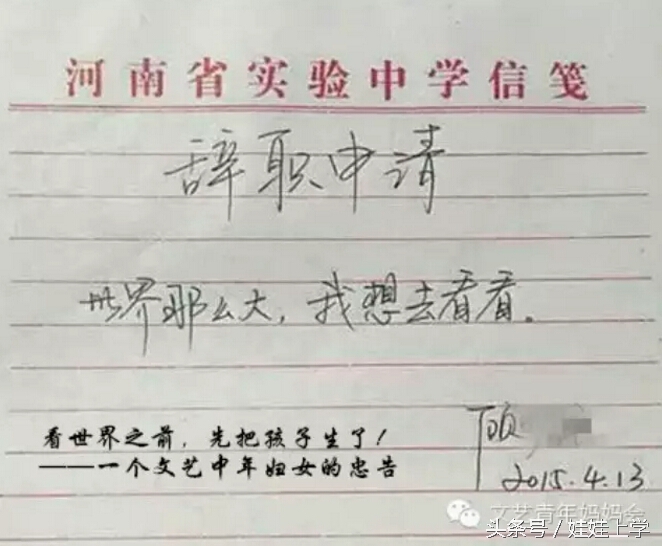 河南省实验中学信笺
辞职申请
世界那么大，我想去看看。
顾
2015.4.13
看世界之前，先把孩子生了！
——一个文艺中年妇女的忠告
文艺青年妈妈会
头条号／娃娃上学